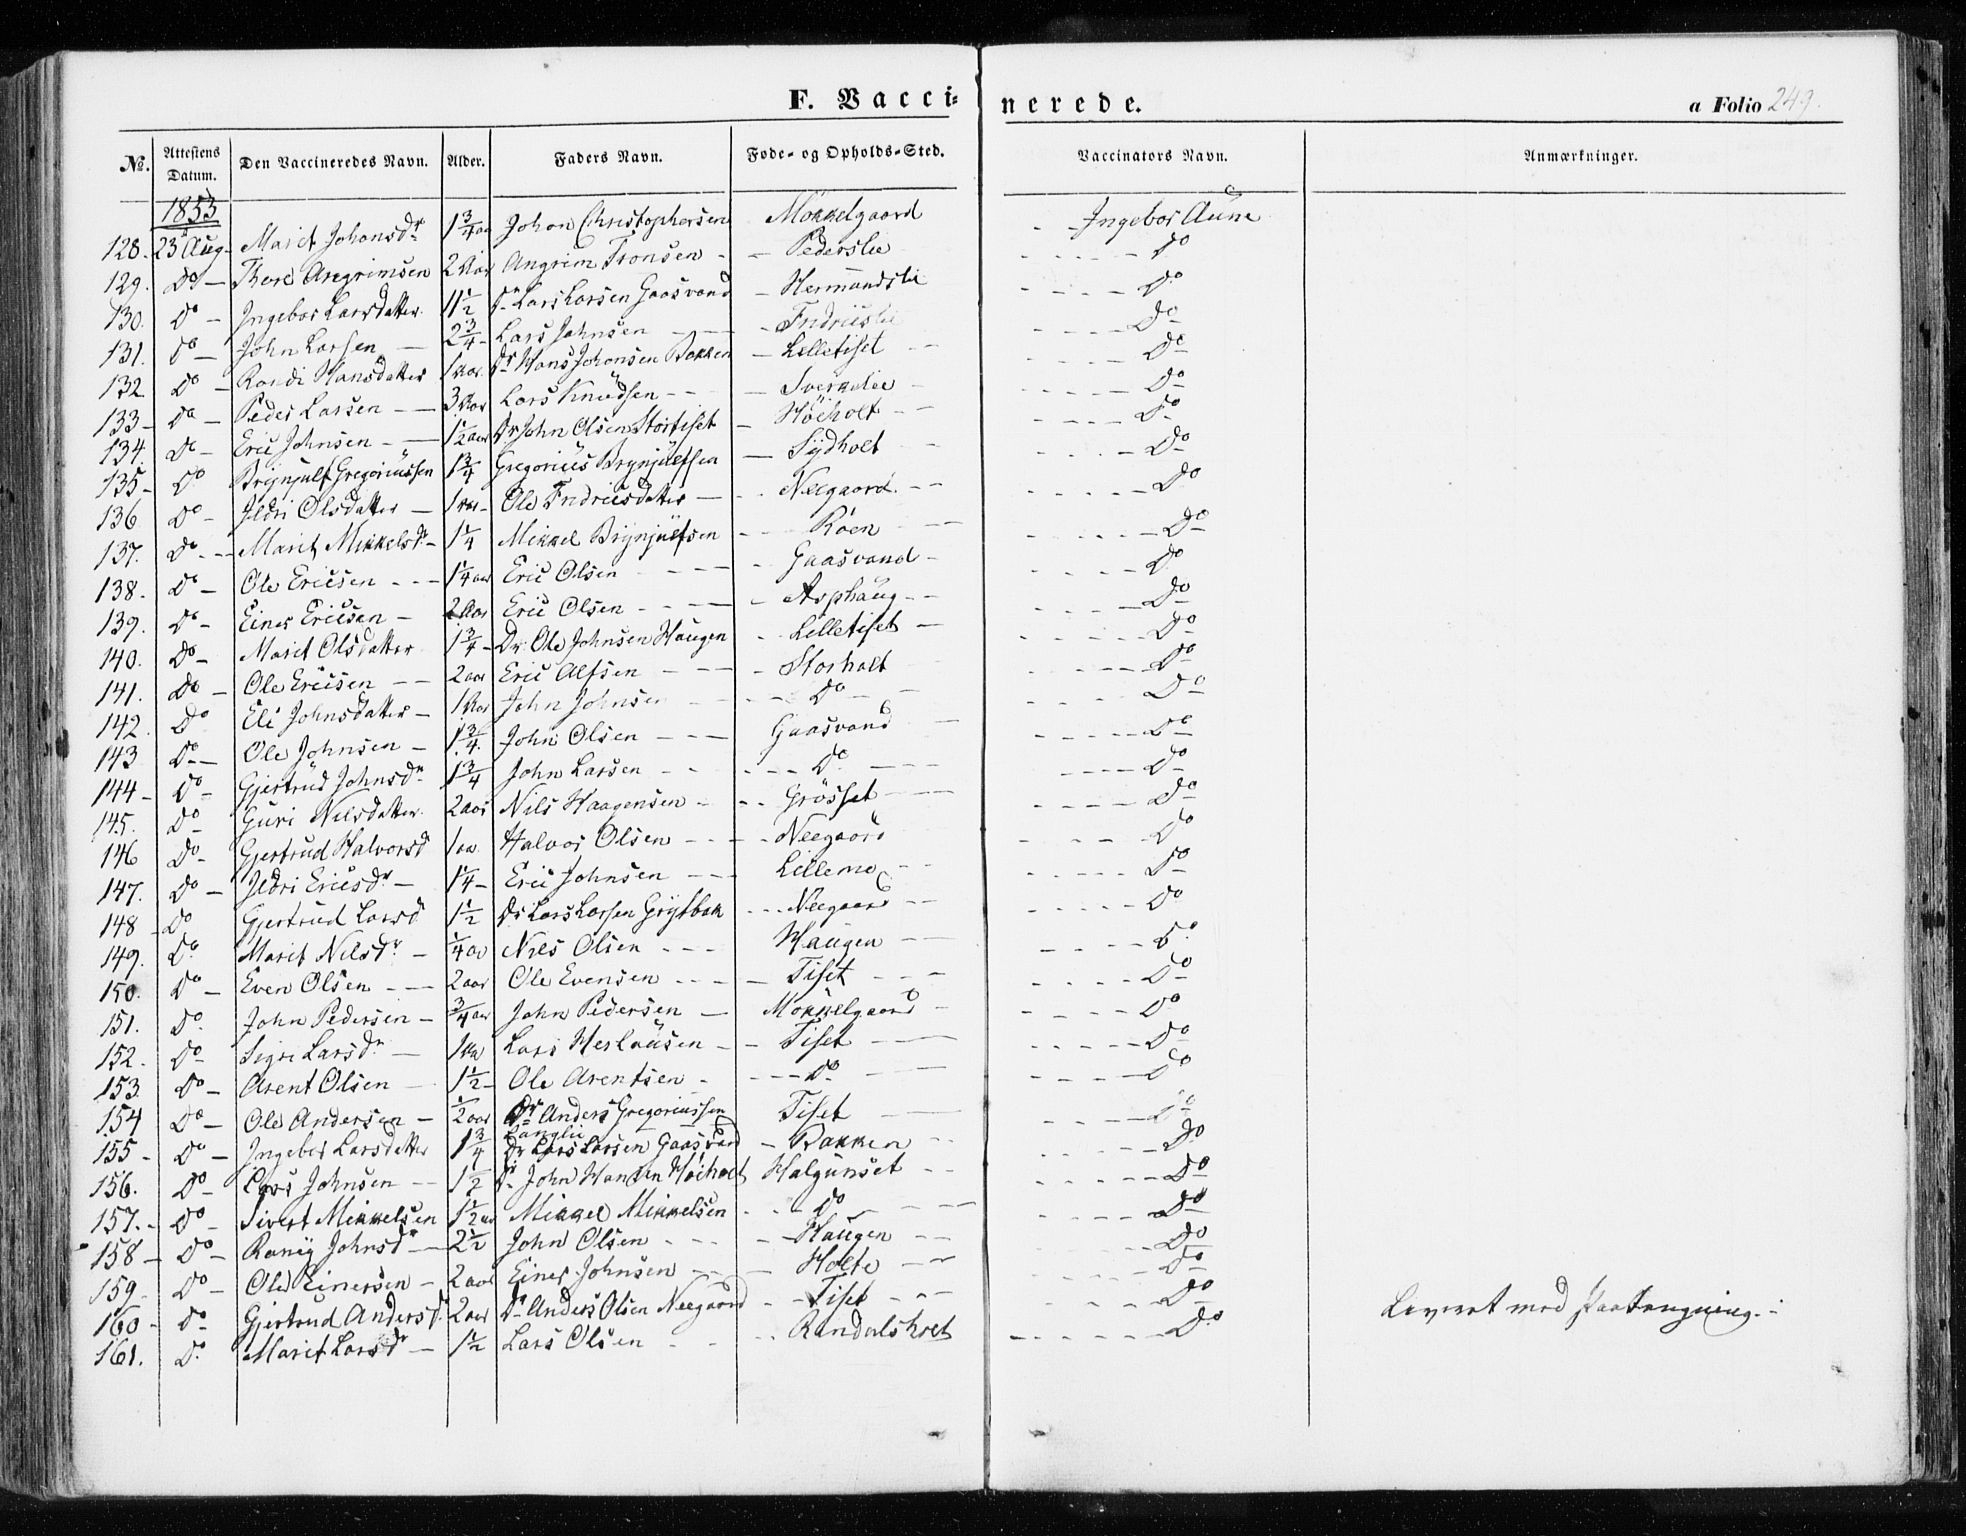 F. Vacci- nerede. a Folio 249.
No. Attestens Datum. Den Vaccineredes Navn. Alder. Faders Navn. Føde- og Opholds-Sted. Vaccinators Navn. Anmærkninger.
1853
128. 23 Aug. Marit Johansdr 1 3/4 aar Johan Christophersen Mokkelgaard Ingebor Aune
129. Do Tore Angrimsen 2 Aar Angrim Tronsen Pederslie Do
130. Do Ingebor Larsdatter 1 1/2 Dr Lars Larsen Gaasvand Hermundslie Do
131. Do John Larsen 2 3/4 Lars Johnsen Indriislie Do
132 Do Randi Hansdatter 1 Aar Dr Hans Johansen Bakken Lilletiset Do
133 Do Peder Larsen 3 Aar Lars Knudsen Sverkelie Do
134. Do Eric Johnsen 1 1/2 aar Dr John Olsen Stortiset Höiholt Do
135 Do Brynjulf Gregoriussen 1 3/4 Gregorius Brynjulfsen Sydholt Do
136 Do Ildri Olsdatter 1 Aar Ole Indriesdatter Neegaard Do
137. Do Marit Mikkelsdr 1 1/4 Mikkel Brynjulfsen Röen Do
138. Do Ole Ericsen 1 1/4 aar Eric Olsen Gaasvand Do
139. Do Einer Ericsen 2 Aar Eric Olsen Asphaug Do
140. Do Marit Olsdatter 1 3/4 Dr Ole Johnsen Haugen Lilletiset Do
141. Do Ole Ericsen 2 aar Eric Alfsen Storholt Do
142. Do Eli Johnsdatter 1 Aar John Johnsen Do Do
143 Do Ole Johnsen 1 3/4 John Olsen Gaasvand Do
144 Do Gjertrud Johnsdr 1 3/4 John Larsen Do Do
145. Do Guri Nilsdatter 2 aar Nils Haagensen Grösset Do
146 Do Gjertrud Halvorsd 1 aa Halvor Olsen Neegaard Do
147. Do Ildri Ericsdr 1 1/4 Eric Johnsen Lillemo Do
148 Do Gjertrud Larsd 1 1/2 Dr Lars Larsen Grytbak Neegaard Do
149. Do Marit Nilsdr 1/4 aa Nils Olsen Haugen Do
150. Do Even Olsen 2 aar Ole Evensen Tiset Do
151. Do John Pedersen 3/4 aar John Pedersen Mokkelgaard Do
152. Do Sigri Larsdr 1 Aa Lars Herlousen Tiset Do
153. Do Arent Olsen 1 1/2 Ole Arentsen Do Do
154 Do Ole Andersen 1/2 aar Dr Anders Gregoriussen Langlie Tiset Do
155 Do Ingebor Larsdatter 1 3/4 Dr Lars Larsen Gaasvand Bakken Do
156. Do Lars Johnsen 1/2 Dr John Hansen Höiholt Halgunset Do
157. Do Sivert Mikkelsen 1 1/2 aar Mikkel Mikkelsen Do Do
158 Do Ranig Johnsdr 2 1/2 John Olsen Haugen Do
159. Do Ole Einersen 2 aar Einer Johnsen Holte Do
160 Do Gjertrud Andersd. 2 aar Dr Anders Olsen Neegaard Tiset Do
161. Do Marit Larsdr 1 1/2 Lars Olsen Randalsholt Do
Liveret med Paategning.